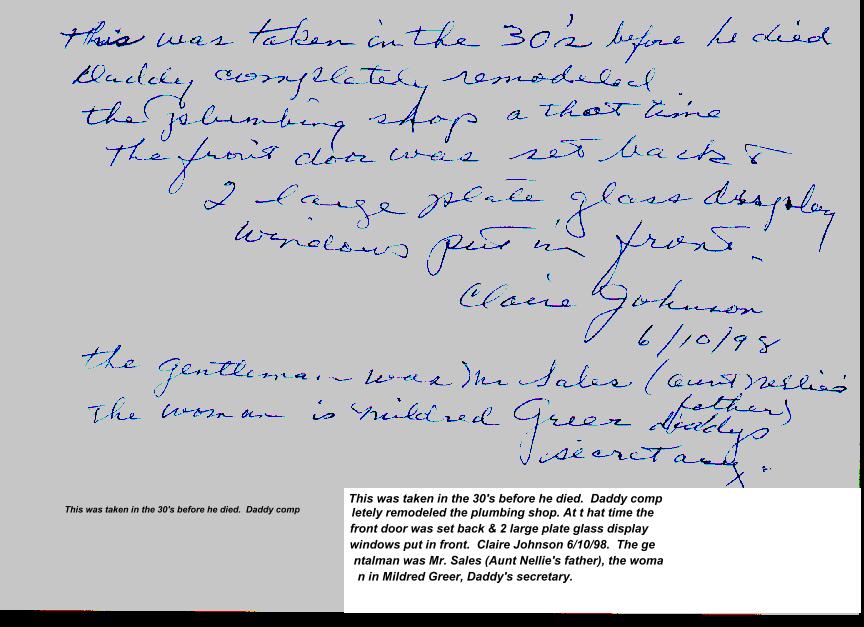 This was taken in the 30's before he died
Daddy complately remodeled
the plumbing shop a that time
the front door was set back &
2 large plate glass display
windows put in front.
Claire Johnson
6/10/98
the gentleman was Mr Sales (aunt Nellie's
father)
the woman is Mildred Greer daddys
secretary.
This was taken in the 30's before he died. Daddy comp
This was taken in the 30's before he died. Daddy comp
letely remodeled the plumbing shop. At t hat time the
front door was set back & 2 large plate glass display
windows put in front. Claire Johnson 6/10/98. The ge
ntalman was Mr. Sales (Aunt Nellie's father), the woma
n in Mildred Greer, Daddy's secretary.